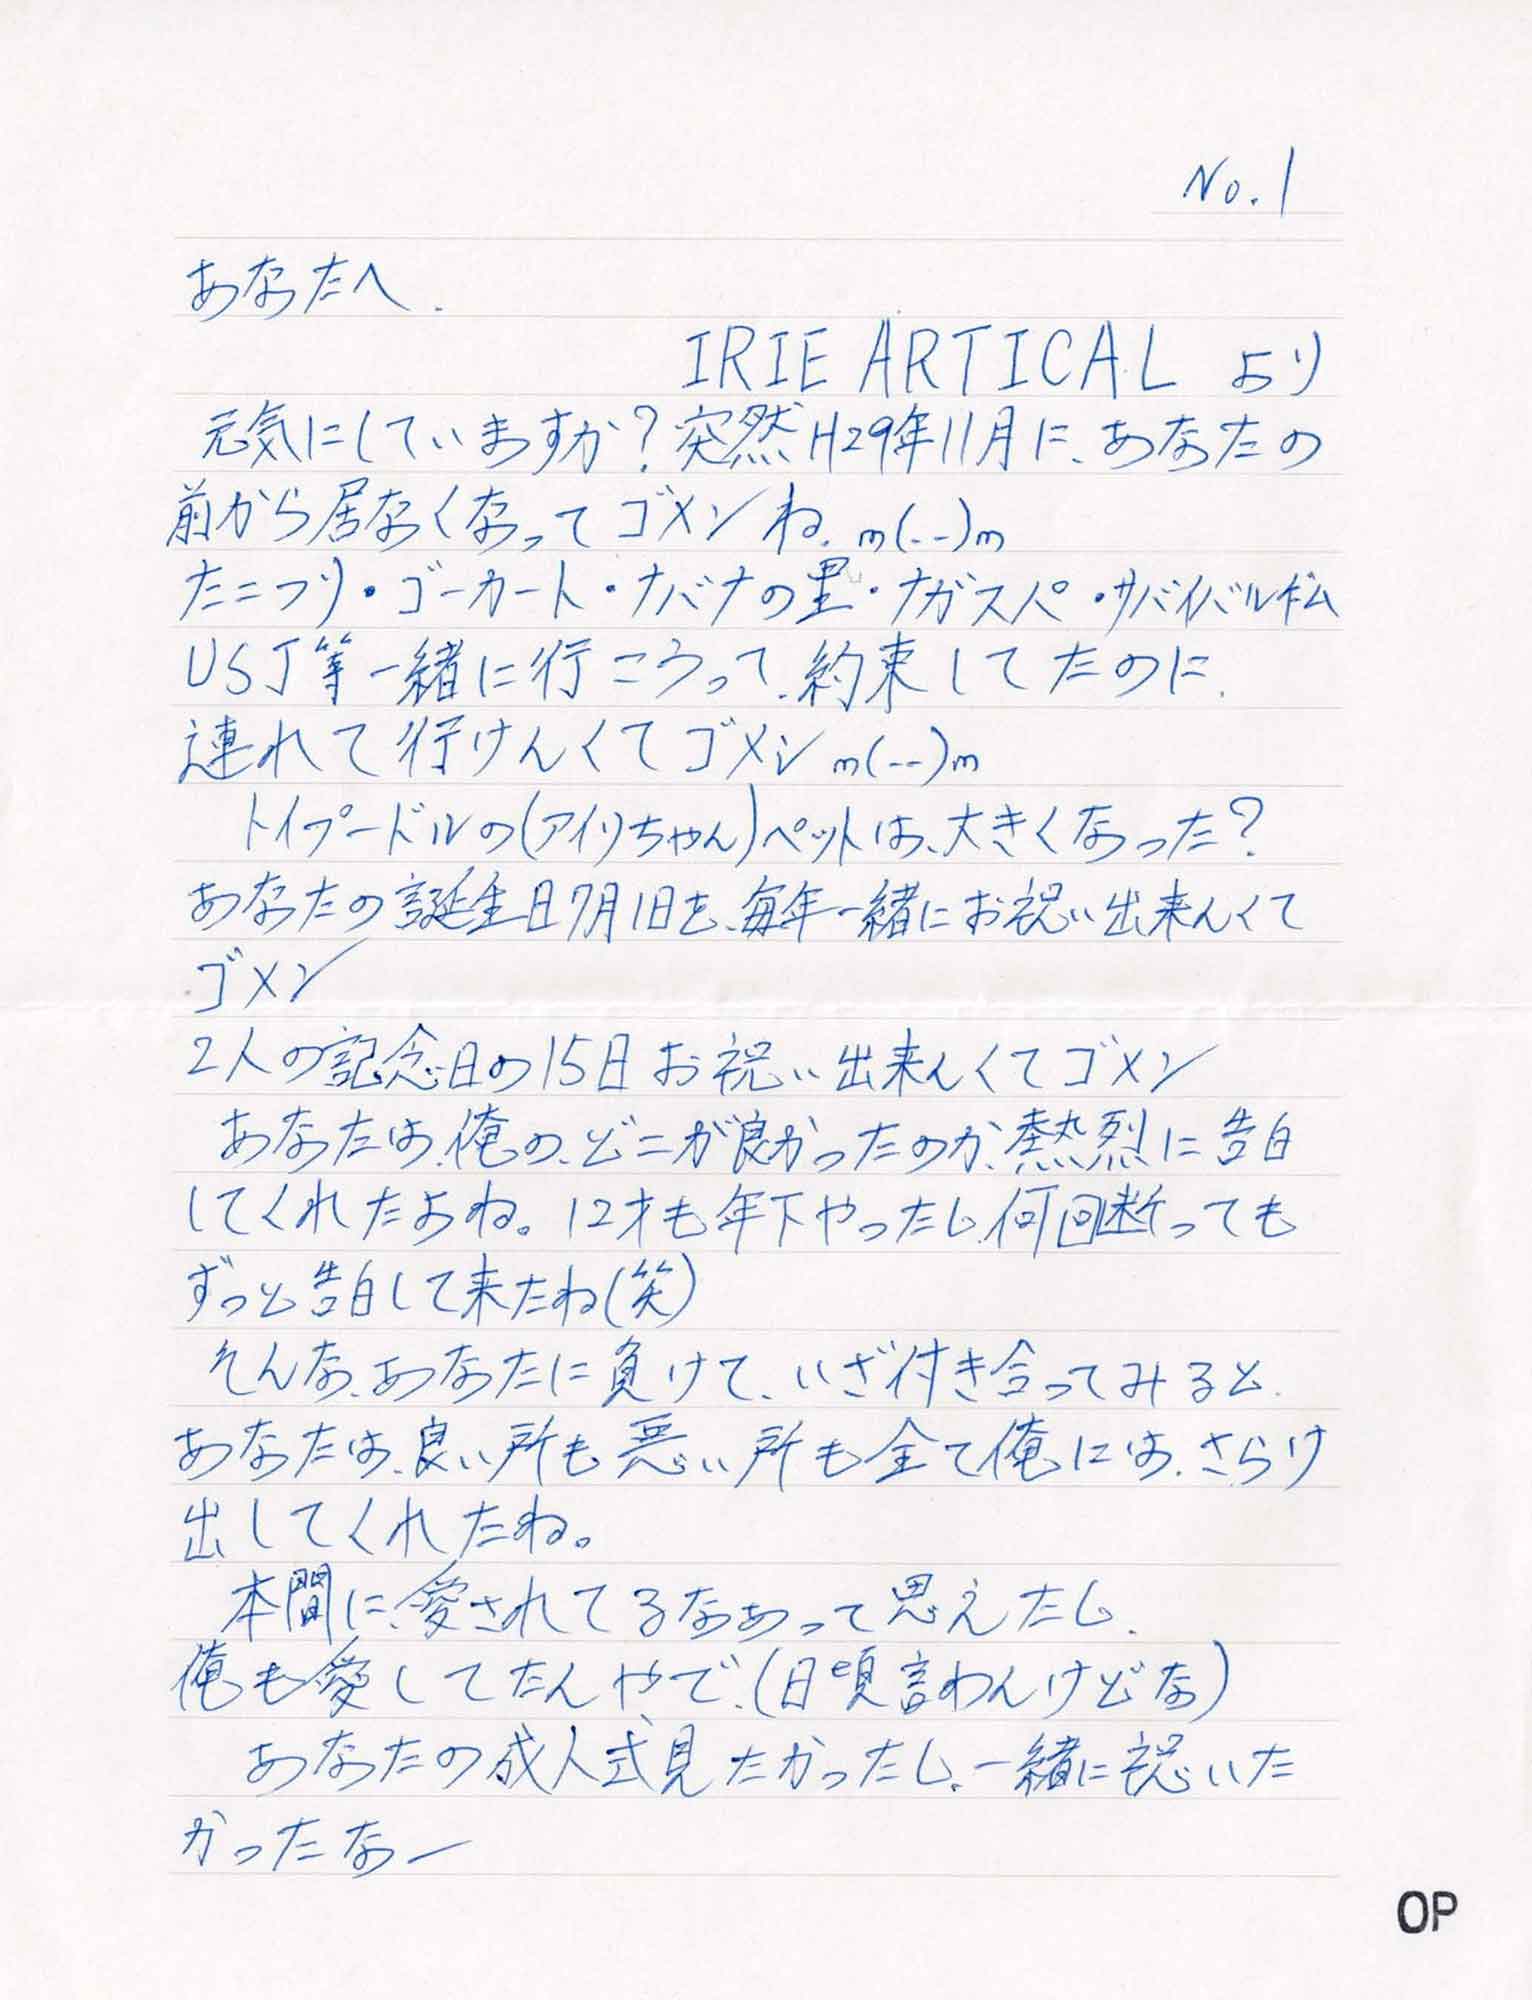 No.1
あなたへ.
IRIE ARTICAL より
元気にしていますか?突然H29年11月に、あなたの
前から居なくなってゴメンね. m(--)m
たこつり・ゴーカート・ナバナの里・ナガスパ・サバイバルゲーム
USJ等一緒に行こうって、約束してたのに、
連れて行けんくてゴメンm(--)m
トイプードルの(アイリちゃん)ペットは、大きくなった?
あなたの誕生日7月1日を、毎年一緒にお祝い出来んくて
ゴメン
2人の記念日の15日お祝い出来んくてゴメン
あなたは、俺の、どこが良かったのか、熱烈に告白
してくれたよね。12才も年下やったし、何回断っても
ずっと告白して来たね(笑)
そんな、あなたに負けて、いざ付き合ってみると、
あなたは、良い所も悪い所も全て俺には、さらけ
出してくれたね。
本間に、愛されてるなあって思えたし、
俺も愛してたんやで、(日頃言わんけどな)
あなたの成人式見たかったし、一緒に祝いた
かったなー
OP